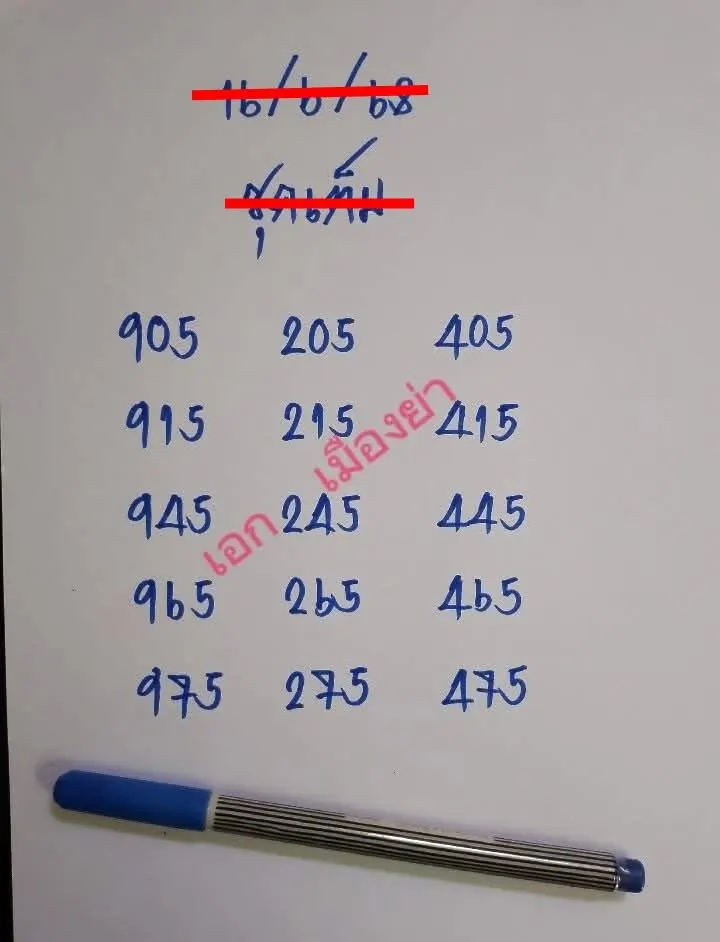 16/6/68
ชุดเต็ม
905 205 405
915 215 415
945 245 445
965 265 465
975 275 475
เอก เมืองย่า